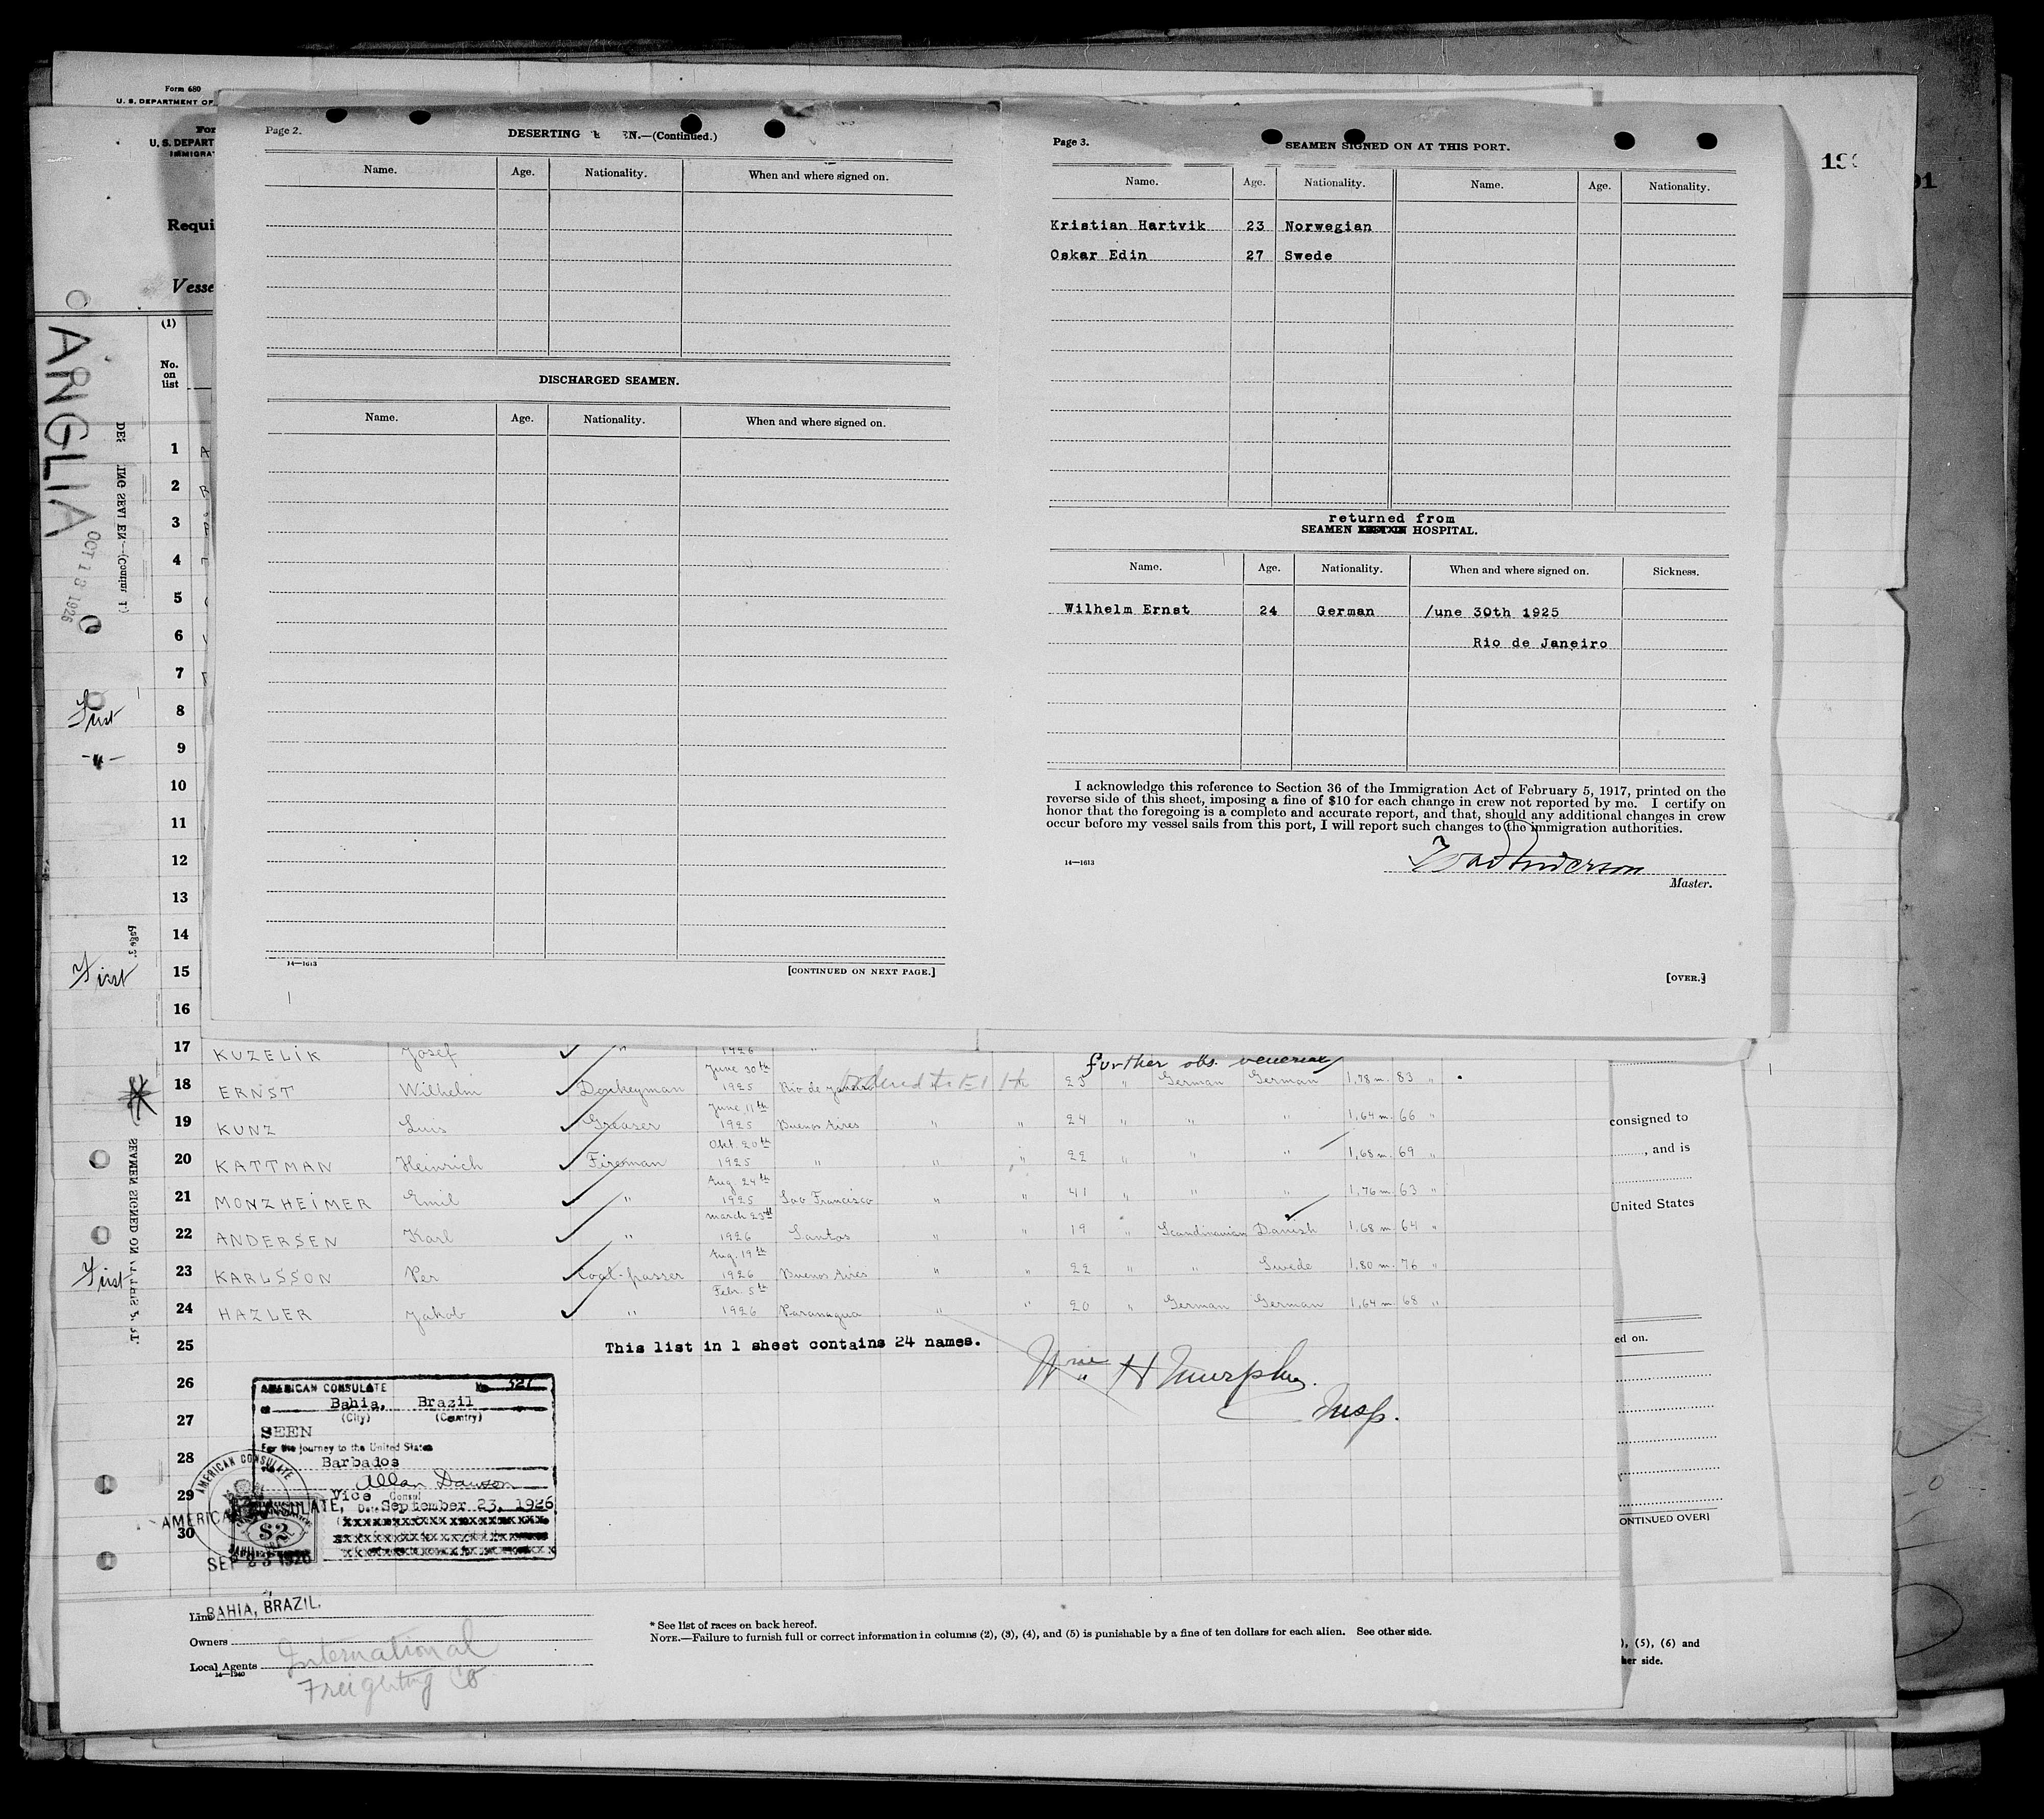 Form 680
U. S. DEPARTMENT OF
U. S. DEPART
IMMIGRA
Requi
Vesse
ANGLIA
OCT 13 1926
(1)
No.
on
list
Page 2.
DESERTING
(Continued.)
Name. Age. Nationality. When and where signed on.
DISCHARGED SEAMEN.
Name. Age. Nationality. When and where signed on.
14—1613
[CONTINUED ON NEXT PAGE.]
Page 3.
SEAMEN SIGNED ON AT THIS PORT.
Name. Age. Nationality. Name. Age. Nationality.
Kristian Hartvik 23 Norwegian
Oskar Edin 27 Swede
returned from
SEAMEN HOSPITAL.
Name. Age. Nationality. When and where signed on. Sickness.
Wilhelm Ernst 24 German /une 30th 1925
Rio de Janeiro
I acknowledge this reference to Section 36 of the Immigration Act of February 5, 1917, printed on the
reverse side of this sheet, imposing a fine of $10 for each change in crew not reported by me. I certify on
honor that the foregoing is a complete and accurate report, and that, should any additional changes in crew
occur before my vessel sails from this port, I will report such changes to the immigration authorities.
14—1613
Master.
[OVER.]
1
2
3
4
5
6
7
First 8
-"- 9
10
11
12
13
14
First 15
16
further obs. venereal
17 KUZELIK Josef " 1926 "
18 ERNST Wilhelm Donkeyman June 30th 1925 Rio de Janeiro " 23 " German German 1,78 m. 83 "
19 KUNZ Luis Greaser June 11th 1925 Buenos Aires " " 24 " " " 1,64 m. 66 "
20 KATTMAN Heinrich Fireman Okt. 20th 1925 " " " 22 " " " 1,68 m. 69 "
21 MONZHEIMER Emil " Aug. 24th 1925 Sao Francisco " " 41 " " " 1,76 m. 63 "
22 ANDERSEN Karl " March 23rd 1926 Santos " " 19 " Scandinavian Danish 1,68 m. 64 "
First 23 KARLSSON Per Coal-passer Aug. 19th 1926 Buenos Aires " " 22 " " Swede 1,80 m. 76 "
24 HAZLER Jakob " Febr. 5th 1926 Paranagua " " 20 " German German 1,64 m. 68 "
25 This list in 1 sheet contains 24 names.
Wm H Murphy.
Insp.
26
27
28
29
30
AMERICAN CONSULATE No 327
at Bahia, Brazil
(City) (Country)
SEEN
For the journey to the United States
Barbados
Allan Dawson
Vice Consul
Date September 23, 1926
AMERICAN CONSULATE
AMERICAN CONSULATE,
$2
SEP 23 1926
BAHIA, BRAZIL.
Line
Owners
Local Agents
International
Freighting Co
14—1940
* See list of races on back hereof.
NOTE.—Failure to furnish full or correct information in columns (2), (3), (4), and (5) is punishable by a fine of ten dollars for each alien. See other side.
consigned to
, and is
United States
ed on.
ONTINUED OVER]
), (5), (6) and
her side.